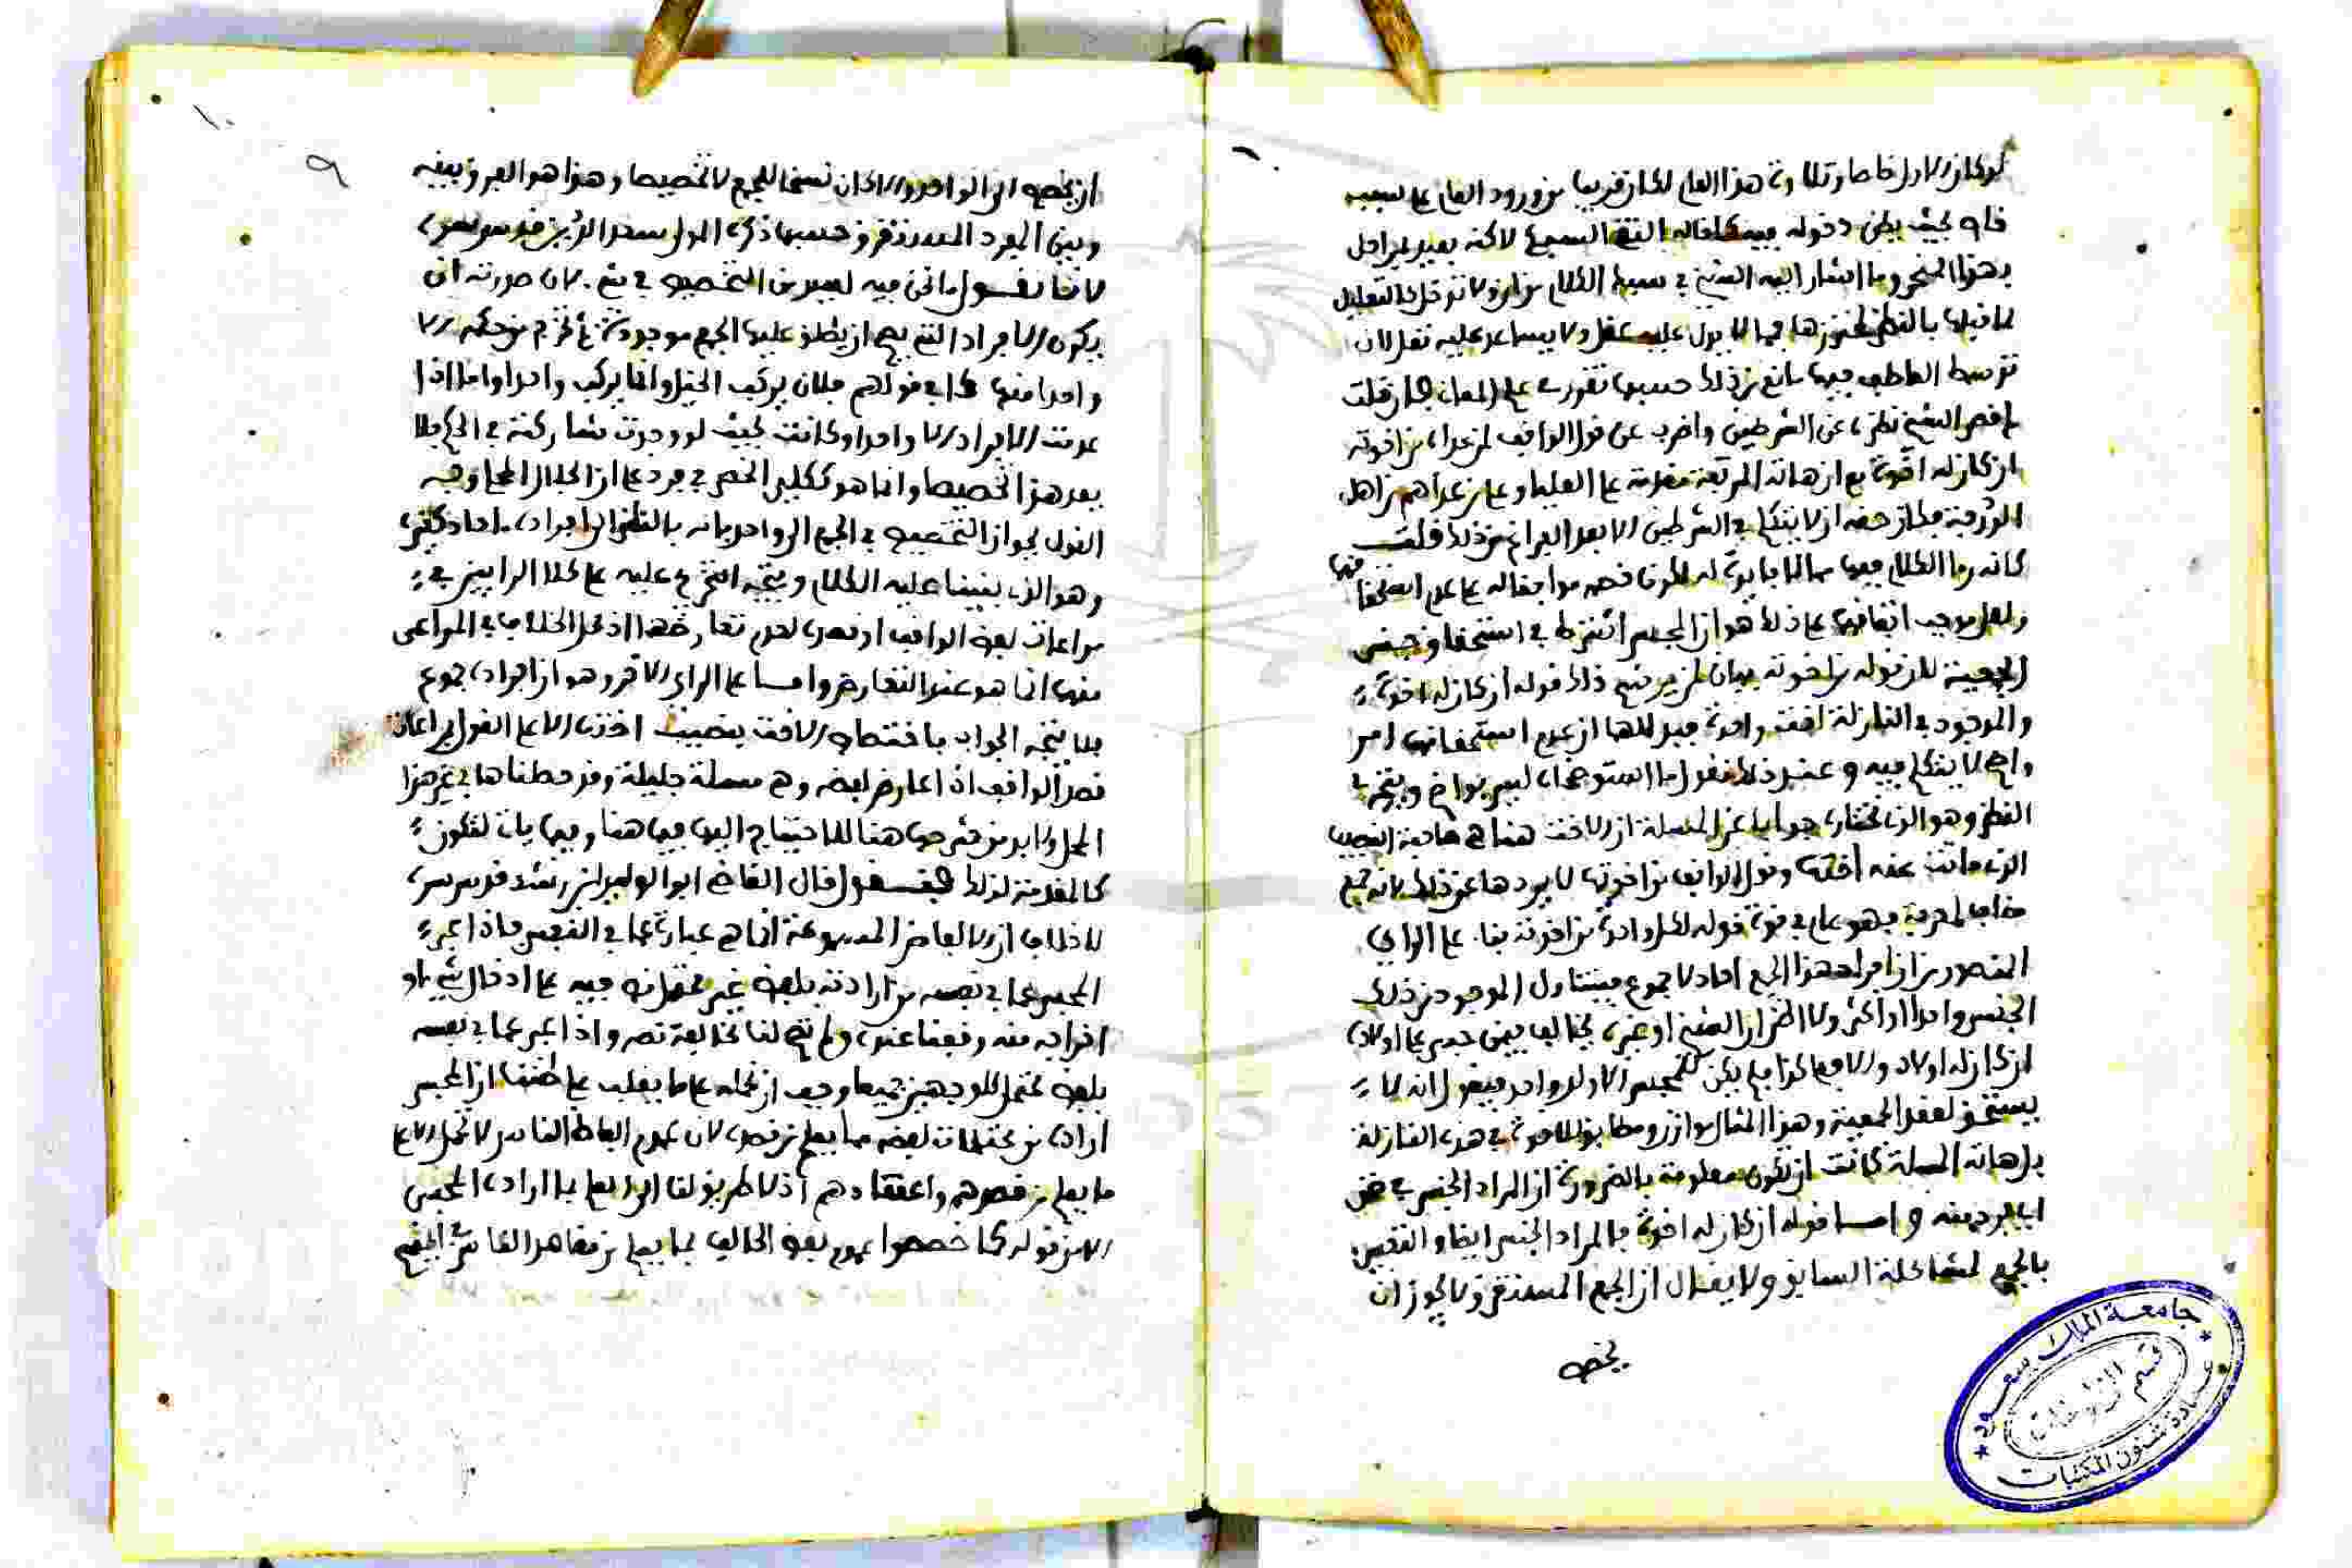 لو كان الاول خاصا وتلاوة هذا العام لكان قريبا من ورود العام على سببه
فانه بحيث يظن دخوله فيه كما قاله التقي السبكي لاكنه بعيد
بهذا المنحى وما اشار اليه الشيخ في سياق الكلام من ان ولا
لما قبلها بالنظر مما لا يدل عليه عقل ولا يساعد عليه نقل لان
توسط العاطف بينها مانع من ذلك حسبما تقرر في علم المعاني فان قلت
لم قصر الشيخ نظره عن الشرطين واضرب عن قول الواقف لمن عداه من اخوته
ان كان له اخوة مع ان هاته المرتبة مقدمة على العليا وعلى من عداهم من اهل
الوقفية فكان حقه ان لا يتكلم في الشرطين الا بعد الفراغ من ذلك قلت
كانه رءا الكلام فيها مما لا فايدة له لكون خصمه موافقا له على عدم استحقاقها
ولعل موجب اتفاقهما على ذلك هو ان المحبس اشترط في استحقاق جنس
الجمعية لان قوله من اخوته بيان لمن يرشح ذلك قوله ان كان له اخوة
والموجود في النازلة اخت واحدة فبدا لهما ان عدم استحقاقها امر
واضح لا يتكلم فيه وعند ذلك نقول ما استوضحاه ليس بواضح ويتجه في
النظر وهو الذي نختاره جوابا عن المسئلة ان الاخت هنا هي صاحبة النصيب
الذي ماتت عنه اختها وقول الواقف من اخوتها لا يردها عن ذلك لانه جمع
مضاف لمعرفة فهو عام في قوة قوله لكل واحدة من اخوته بناء على الراي
المنصور من ان افراد هذا الجمع احاد لا جموع فيتناول الموجود من ذلك
الجنس واحدا او اكثر ولا اظن ان الشيخ او غيره يخالف فيمن حبس على اولاده
ان كان له اولاد والا فعلى كذا فلم يكن للمحبس الا ولد واحد فيقول انه لا
يستحق لفقد الجمعية وهذا المثال موازن ومطابق للاخوة في هذه النازلة
بل هاته المسئلة كادت ان تكون معلومة بالضرورة ان المراد الجنس في ضمن
اي فرد منه واما قوله ان كان له اخوة فالمراد الجنس ايضا والتعبير
بالجمع لمشاكلة السابق ولا يقال ان الجمع المستغرق لا يجوز ان
يخص
١٠
٩
ان يخص الى الواحد والا كان نسخا للجمع لا تخصيصا وهذا هو الفرق بينه
وبين المفرد المستغرق حسبما ذكره المولى سعد الدين قدس سره
لانا نقول ما نحن فيه ليس من التخصيص في شيء لان صورته ان
يكون الافراد التي يصح ان يطلق عليها الجمع موجودة ثم تخرج من حكمه الا
واحدا منها كما في قولهم فلان يركب الخيل وانما يركب واحدا واما اذا
عدمت الافراد الا واحدا وكانت بحيث لو وجدت شاركته في الحكم فلا
يعد هذا تخصيصا وانما هو ككلي انحصر في فرد على ان الجلال المحلي وجه
القول بجواز التخصيص في الجمع الى واحد بانه بالنظر الى ان افراده احاد كغيره
وهو الذي بنينا عليه الكلام ويتجه التخريج عليه على كلا الرايين في
مراعات لفظ الواقف او قصده لعدم تعارضهما اذ محل الخلاف في المراعى
منهما انما هو عند التعارض واما على الراي الاخر وهو ان افراده جموع
فلا يتجه الجواب باختصاص الاخت بنصيب اختها الا على القول بمراعات
قصد الواقف اذا عارض لفظه وهي مسئلة جليلة وقد حططناها في غير هذا
المحل ولا بد من شرحها هنا للاحتياج اليها فيما هنا وفيما ياتي لتكون
كالمقدمة لذلك فنقول قال القاضي ابو الوليد ابن رشد قدس سره
لا خلاف ان الالفاظ المسموعة انما هي عبارة عما في النفس فاذا عبر
المحبس عما في نفسه من ارادته بلفظ غير محتمل نص فيه على ادخال شيء او
اخراجه منه وقفنا عنده ولم تصح لنا مخالفة نصه واذا عبر عما في نفسه
بلفظ محتمل للوجهين جميعا وجب ان نحمله على ما يغلب على ظننا ان المحبس
اراده من محتملات لفظه مما يعلم من قصده لان عموم الفاظ الناس لا تحمل الا على
ما يعلم من قصدهم واعتقادهم اذ لا طريق لنا الى العلم بما اراده المحبس
الا من قوله كما خصصوا عموم لفظ الحالف بما يعلم من مقاصد الناس في ايمانهم
جامعة الملك سعود
عمادة شئون المكتبات
قسم المخطوطات